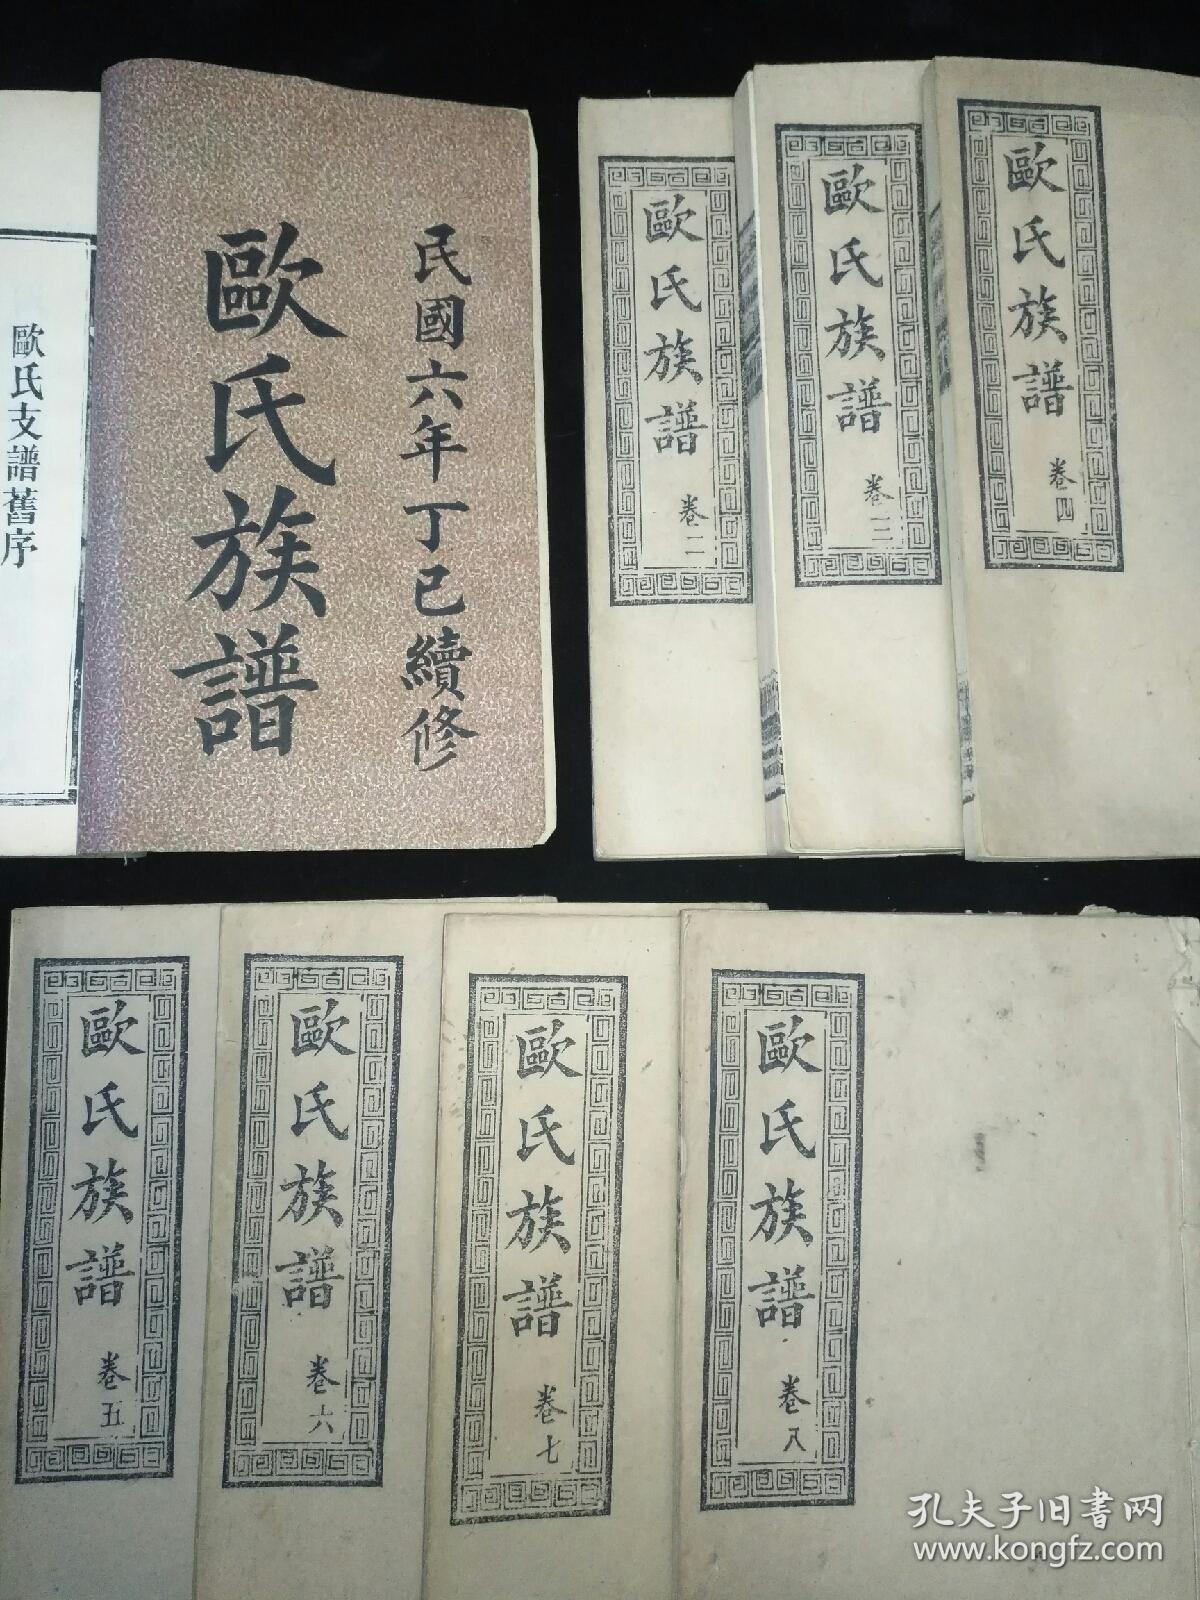 民國六年丁巳續修
歐氏族譜
歐氏支譜舊序
歐氏族譜
卷二
歐氏族譜
卷三
歐氏族譜
卷四
歐氏族譜
卷五
歐氏族譜
卷六
歐氏族譜
卷七
歐氏族譜
卷八
孔夫子旧书网
www.kongfz.com